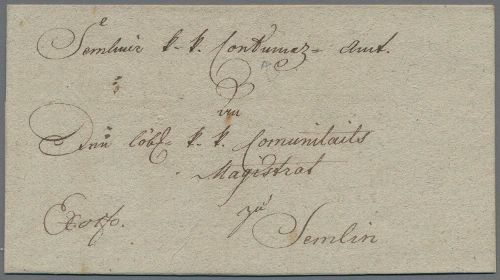 Semliner k. k. Contumaz- Amt.
an
Den löbl- k. k. Comunitaits
Magistrat
Ex off.
zu
Semlin